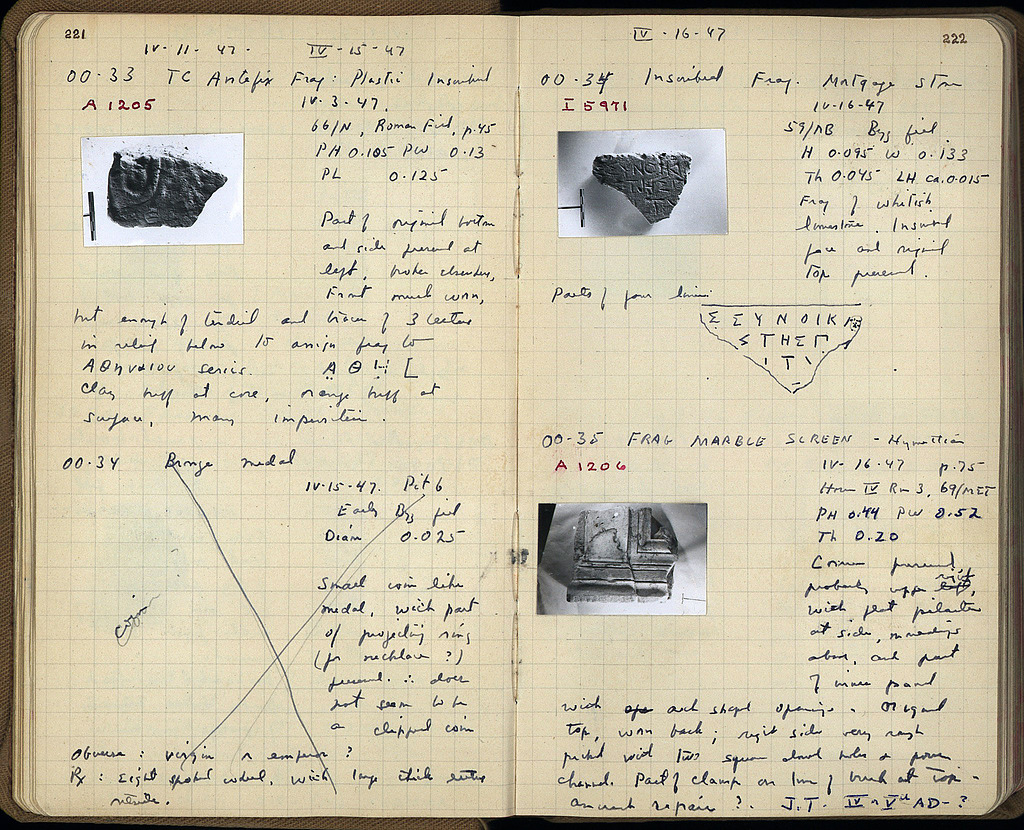 221
IV-11-47. IV-15-47
OO-33 TC Antefix Frag: Plastic Inscribed
A 1205
IV-3-47.
66/N, Roman Fill, p.45
PH 0.105 PW 0.13
PL 0.125
Part of original bottom
and side present at
left, broken elsewhere,
Front much worn,
but enough of tendril and traces of 3 letters
in relief below to assign frag to
Αθηναιου series. Α Θ Η [
Clay buff at core, orange buff at
surface, many impurities.
OO-34 Bronze medal
IV-15-47. Pit 6
Early Byz fill
Diam 0.025
Small coin like
medal, with part
of projecting ring
(for necklace?)
present. ∴ does
not seem to be
a clipped coin
coin
Obverse: virgin or emperor?
Rx: Eight spoked wheel, with large thick letters
outside.
IV-16-47
222
OO-34 Inscribed Frag. Mortgage stone
I 5971
IV-16-47
59/ΛΒ Byz fill
H 0.095 W 0.133
Th 0.045 LH ca. 0.015
Frag of whitish
limestone. Inscribed
face and original
top present.
Parts of four lines:
Σ Σ Υ Ν Ο Ι Κ
Σ Τ Η Ε Γ
Ι Τ Ι
OO-35 FRAG MARBLE SCREEN - Hymettian
A 1206
IV-16-47 p.75
House IV Rm 3, 69/
PH 0.44 PW 0.52
Th 0.20
Corner preserved,
probably upper right,
with flat pilaster
at side, mouldings
above, and part
of inner panel
with arch shaped openings. Original
top, worn back; right side very rough
picked with two square dowel holes & pour
channel. Part of clamp on line of break at top -
ancient repair? J.T. IV or Vth AD-?